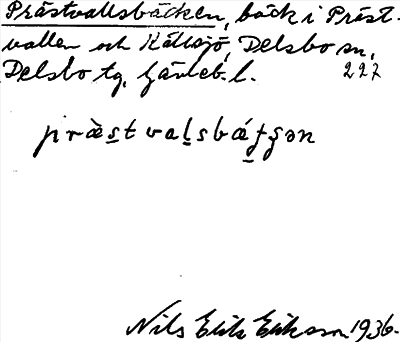 Prästvallsbäcken, bäck i Präst-
vallen och Källsjö, Delsbo sn,
Delsbo tg, Gävleb. l. 227
præ̀s̱tvaḻsbǽʧ̱ʂən
Nils Erik Eriksson 1936.